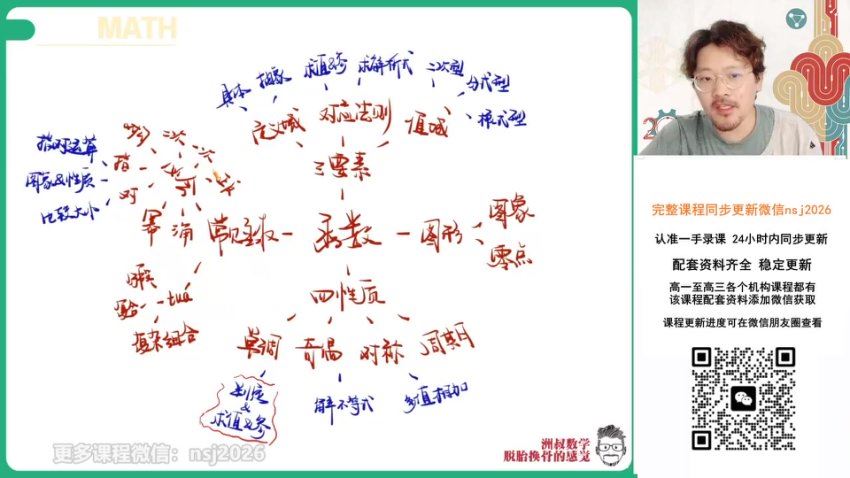 MATH
具体 抽象 求值&参 求解析式 二次型
分式型
根式型
定义域 对应法则 值域
三要素
指对运算
图象&性质
比较大小
一次 二次
指
对
幂
常见函数 函数 图形
图象
零点
四性质
复杂组合
单调 奇偶 对称 周期
判定
&
求值&参
解不等式 多值相加
洲叔数学
脱胎换骨的感觉
更多课程微信：nsj2026
完整课程同步更新微信nsj2026
认准一手录课 24小时内同步更新
配套资料齐全 稳定更新
高一至高三各个机构课程都有
该课程配套资料添加微信获取
课程更新进度可在微信朋友圈查看